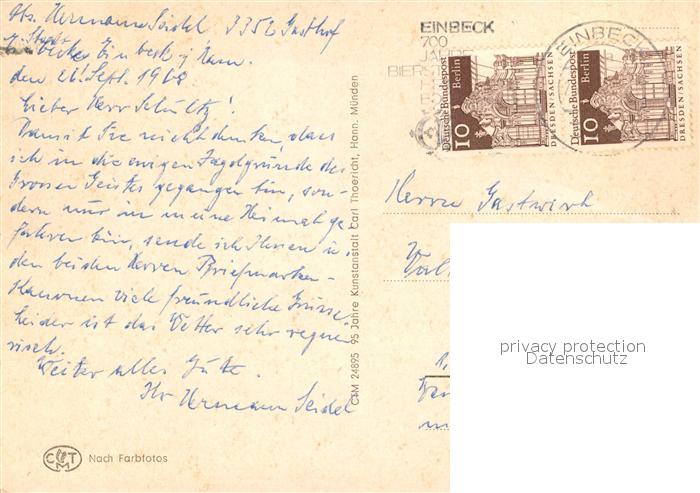 Abs. Hermann Seidel 3352 Gasthof
z. Stadt becker Einbeck / Hann.
den 26. Sept. 1968
Lieber Herr Schultz!
Damit Sie nicht denken, dass
ich in die ewigen Jagdgründe des
Grossen Geistes gegangen bin, son-
dern nur in meine Heimat ge
fahren bin, sende ich Ihnen u.
den beiden Herren Briefmarken-
Kanonen viele freundliche Grüsse.
Leider ist das Wetter sehr regne
risch.
Weiter alles Gute.
Ihr Hermann Seidel
CMT
Nach Farbfotos
CTM 24895 95 Jahre Kunstanstalt Carl Thoericht, Hann. Münden
EINBECK
700
JAHRE
BIERST
EINBECK
Deutsche Bundespost
Berlin
10
DRESDEN/SACHSEN
Deutsche Bundespost
Berlin
10
DRESDEN/SACHSEN
Herrn Gastwirt
privacy protection
Datenschutz